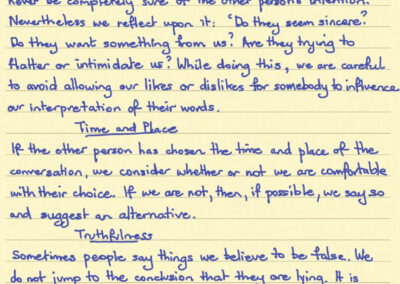 never be completely sure of the other person's intention.
Nevertheless we reflect upon it: 'Do they seem sincere?
Do they want something from us? Are they trying to
flatter or intimidate us? While doing this, we are careful
to avoid allowing our likes or dislikes for somebody to influence
our interpretation of their words.
Time and Place
If the other person has chosen the time and place of the
conversation, we consider whether or not we are comfortable
with their choice. If we are not, then, if possible, we say so
and suggest an alternative.
Truthfulness
Sometimes people say things we believe to be false. We
do not jump to the conclusion that they are lying. It is